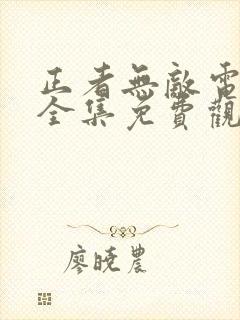 正者無敵電
全集免費觀
廖曉農